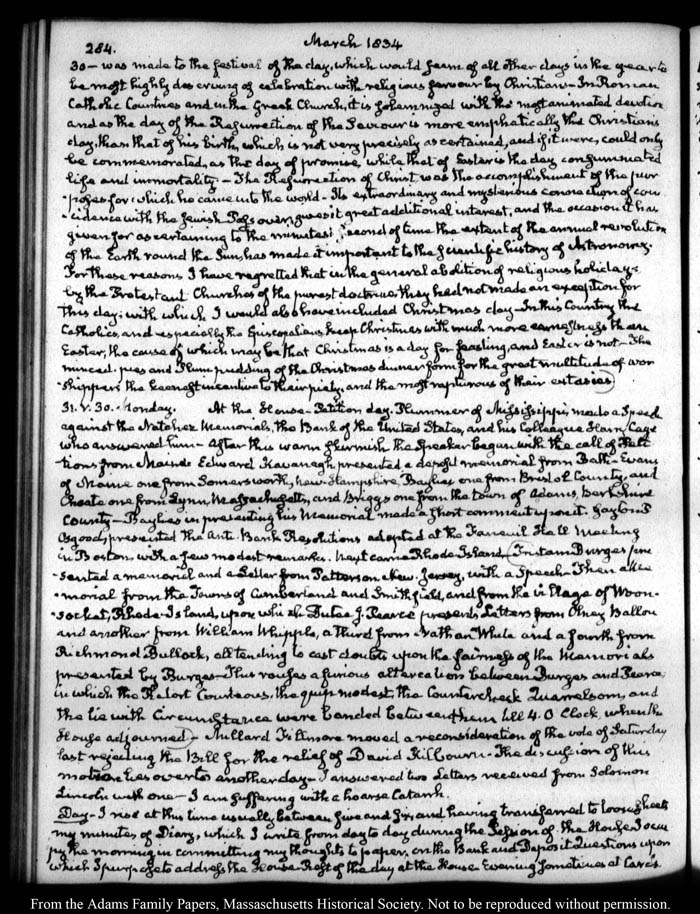 284.
March 1834
30 — was made to the festival of the day, which would seem of all other days in the year to
be most highly deserving of celebration with religious fervour by Christians — In Roman
Catholic Countries and in the Greek Church, it is solemnized with the most animated devotion
and as the day of the Resurrection of the Saviour is more emphatically the Christian's
day, than that of his birth, which is not very precisely ascertained, and if it were, could only
be commemorated, as the day of promise, while that of Easter is the day consummated
life and immortality — The Resurrection of Christ was the accomplishment of the pur
poses for which he came into the world — Its extraordinary and mysterious connection of coin
-cidence with the Jewish Passover gives it great additional interest, and the occasion it has
given for ascertaining to the minutest second of time the extent of the annual revolution
of the Earth round the Sun, has made it important to the scientific history of Astronomy.
For these reasons I have regretted that in the general abolition of religious holidays
by the Protestant Churches of the purest doctrine, they had not made an exception for
this day; with which I would also have included Christmas day — In this Country the
Catholics, and especially the Episcopalians keep Christmas with much more earnestness than
Easter; the cause of which may be that Christmas is a day for feasting, and Easter is not — The
minced pies and Plum pudding of the Christmas dinner form for the great multitude of wor
-shippers the keenest incentive to their piety, and the most rapturous of their extasies
31. V. 30. Monday. At the House — Petition day. Plummer of Mississippi, made a Speech
against the Natchez Memorials, the Bank of the United States, and his Colleague Harry Cage
who answered him — After this warm skirmish the Speaker began with the call of Peti
tions from Maine Edward Kavanagh presented a memorial from Bath — Evans
of Maine one from Somersworth, New-Hampshire, Baylies one from Bristol County, and
Choate one from Lynn, Massachusetts, and Briggs one from the town of Adams, Berkshire
County — Baylies in presenting his Memorial made a short comment upon it. Gayton P.
Osgood, presented the Anti Bank Resolutions adopted at the Faneuil Hall Meeting
in Boston, with a few modest remarks. Next came Rhode-Island, Tristam Burges pre
-sented a memorial and a Letter from Patterson New Jersey, with a Speech — Then a Me
-morial from the Towns of Cumberland and Smithfield, and from the village of Woon-
-socket, Rhode-Island, upon which Dutee J. Pearce presents Letters from Olney Ballou
and another from William Whipple, a third from Nathan White and a fourth from
Richmond Bullock, all tending to cast doubts upon the fairness of the Memorials
presented by Burges — Thus rouses a furious altercation between Burges and Pearce,
in which the Retort Courteous, the quip modest, the Countercheck Quarrelsom, and
the lie with Circumstance were bandied between them till 4. O Clock, when the
House adjourned — Millard Fillmore moved a reconsideration of the vote of Saturday
last rejecting the Bill for the relief of David Kilbourn. The discussion of this
motion lies over to another day — I answered two Letters received from Solomon
Lincoln with one — I am suffering with a hoarse Catarrh.
Day — I rise at this time usually between five and six, and having transferred to loose sheets
my minutes of Diary, which I write from day to day during the Session of the House I occu
py the morning in committing my thoughts to paper, on the Bank and Deposit Questions upon
which I purpose to address the House. Rest of the day at the House. Evening sometimes at Cards
From the Adams Family Papers, Massachusetts Historical Society. Not to be reproduced without permission.